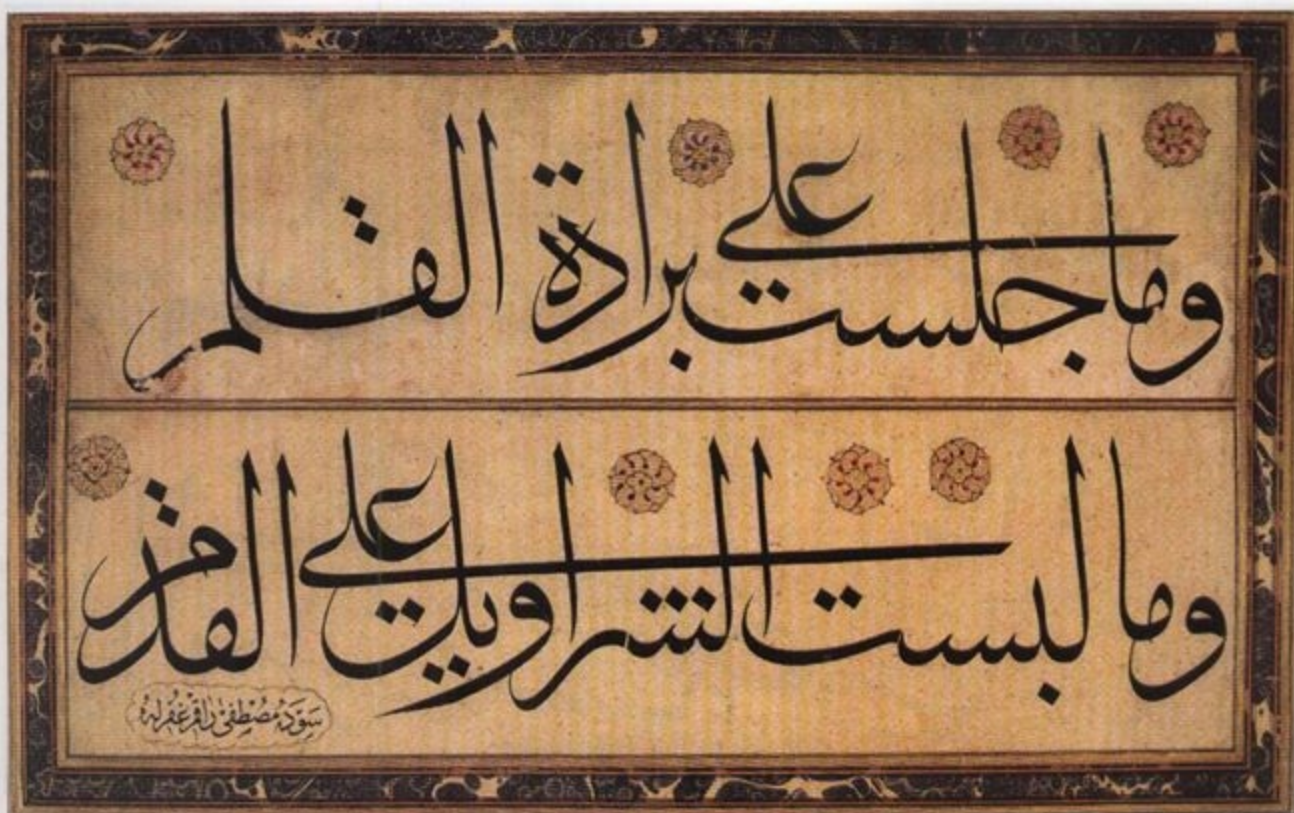 وما جلست على برادة القلم
وما لبست الشراويل على القدم
سوّده مصطفى راقم غفر له